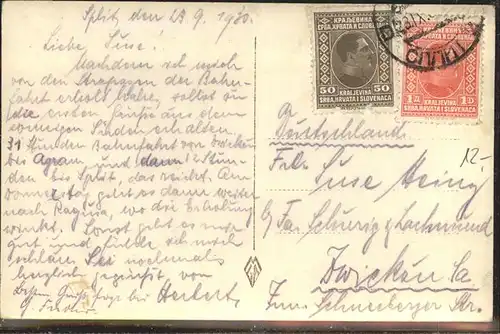 Split den 23.9.1930.
Liebe Suse!
Nachdem ich mich
von den Strapazen der Bahn-
fahrt erholt habe, sollst du
die ersten Grüsse aus dem
sonnigen Süden erhalten.
31 Stunden Bahnfahrt von
bis Agram und dann Stun-
den bis Split, das reicht. Am
Donnerstag geht es dann weiter
nach Ragusa, wo die Erholung
winkt. Sonst geht es mir
gut und fühle ich mich
Sei nochmals
herzlich gegrüsst von
Herbert.
КРАЉЕВИНА
СРБА, ХРВАТА И СЛОВЕНАЦА
50 50
KRALJEVINA
SRBA, HRVATA I SLOVENACA
КРАЉЕВИНА
СРБА, ХРВАТА И СЛОВЕНАЦА
1 Д 1 D
KRALJEVINA
SRBA, HRVATA I SLOVENACA
СПЛИТ
Deutschland.
Frl.
Suse Heinig
Fa. Schurig & Lachmund
Zwickau Sa
Schneeberger Str.
12.-